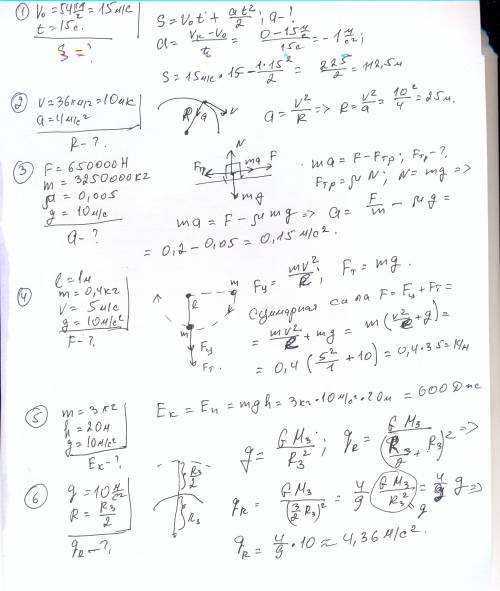 ① V₀ = 54 км/ч = 15 м/с
t = 15 с.
S = ?
S = V₀t + at²/2; a - ?
a = (Vк - V₀)/t = (0 - 15 м/с)/15с = -1 м/с²;
S = 15 м/с · 15 - 1·15²/2 = 225/2 = 112,5 м
② V = 36 км/ч = 10 м/с
a = 4 м/с²
R - ?
R a V
a = V²/R => R = V²/a = 10²/4 = 25 м.
③ F = 650000 Н
m = 3250000 кг
μ = 0,005
g = 10 м/с
a - ?
N
Fтр ma F
mg
ma = F - Fтр; Fтр - ?
Fтр = μN; N = mg =>
ma = F - μmg => a = F/m - μg =
= 0,2 - 0,05 = 0,15 м/с².
④ ℓ = 1 м
m = 0,4 кг
V = 5 м/с
g = 10 м/с²
F - ?
m
R
m
Fц
Fт.
Fц = mV²/R; Fт = mg.
Суммарная сила F = Fц + Fт =
= mV²/R + mg = m(V²/R + g) =
= 0,4 (5²/1 + 10) = 0,4·35 = 14 Н
⑤ m = 3 кг
h = 20 м
g = 10 м/с²
Eк - ?
Eк = Eп = mgh = 3 кг·10 м/с²·20 м = 600 Дж
⑥ g = 10 м/с²
R = Rз/2
gR - ?
Rз/2
Rз
g = GMз/Rз²; gR = GMз/(Rз/2 + Rз)² =>
gR = GMз/(3/2 Rз)² = 4/9 (GMз/Rз²) = 4/9 g =>
g
gR = 4/9 · 10 ≈ 4,36 м/с².